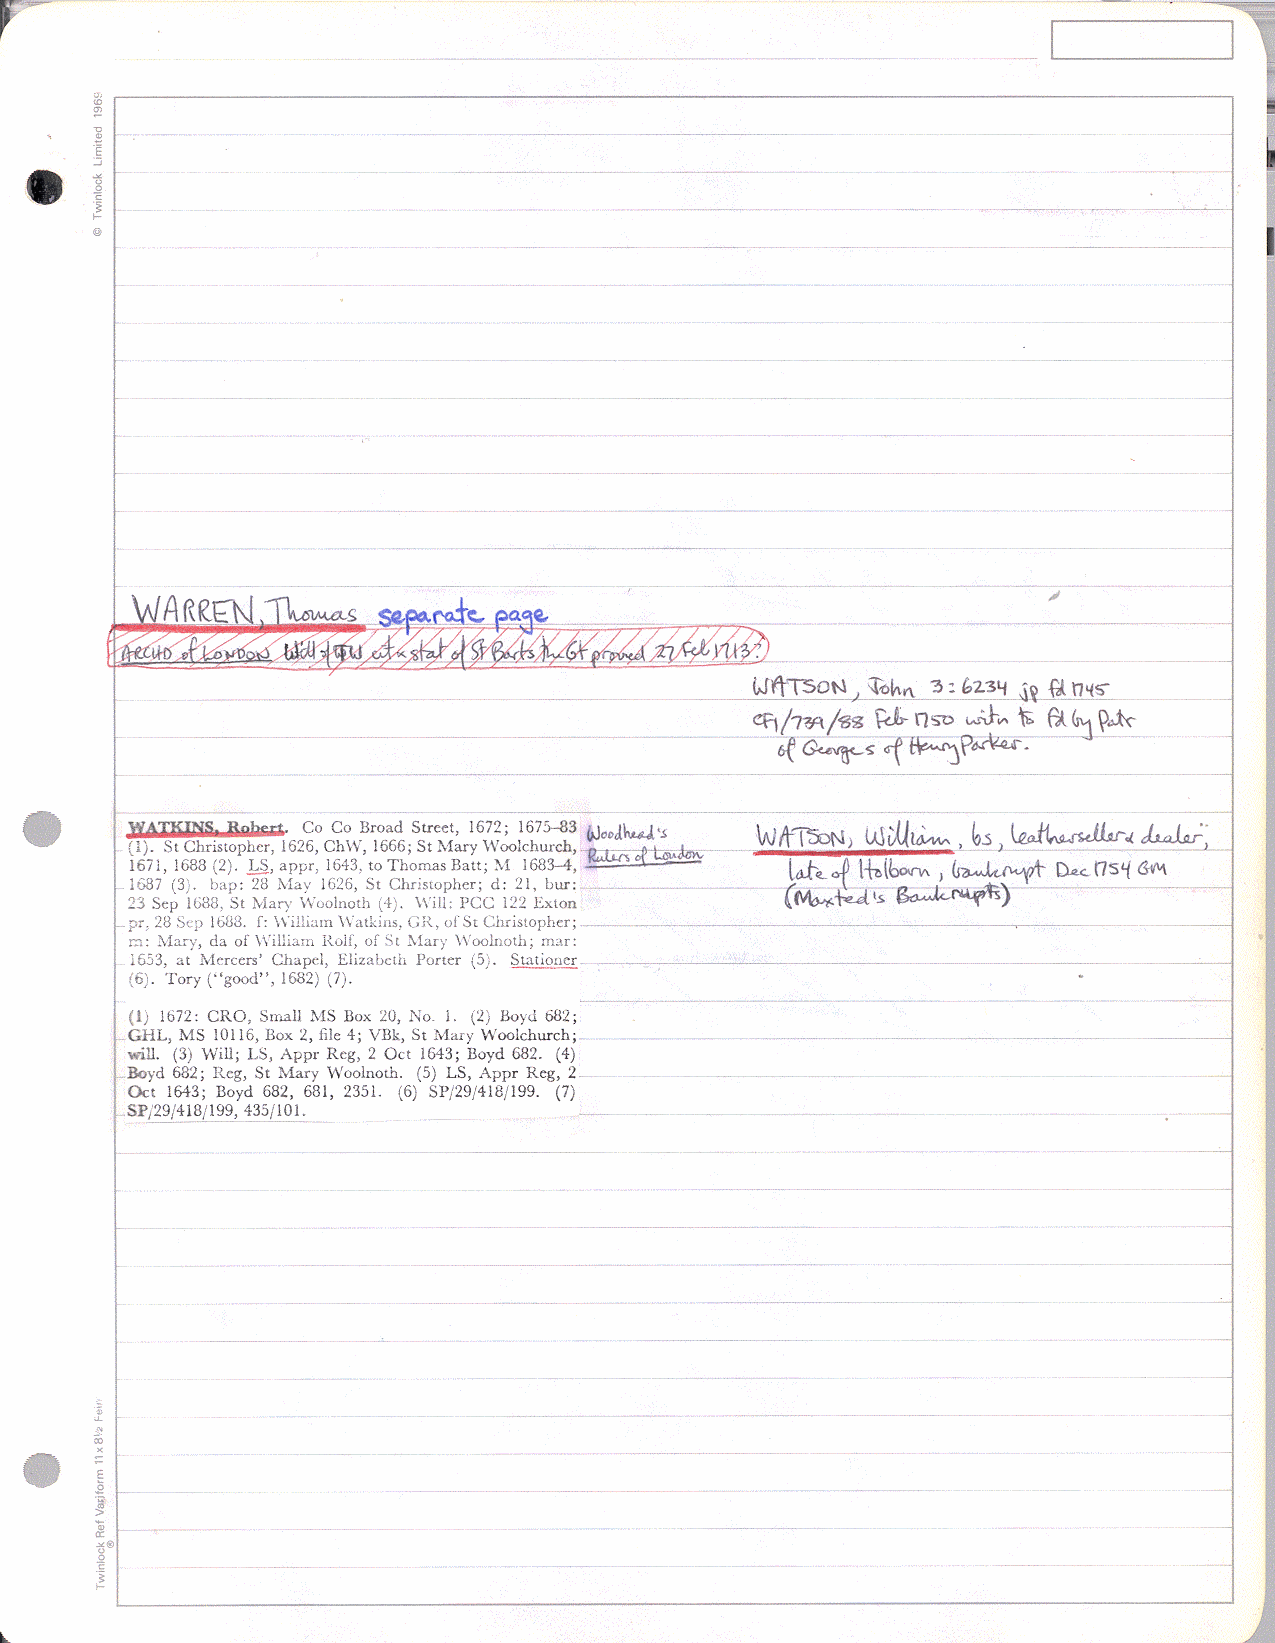 © Twinlock Limited 1969
WARREN, Thomas separate page
ARCHD of LONDON Will of TW citn & stat of St Barts the Gt proved 27 Feb 1713?
WATSON, John 3:6234 jp fd 1745
CF1/739/88 Feb 1750 with to fd by Patr
of George s of Henry Parker.
WATKINS, Robert. Co Co Broad Street, 1672; 1675–83
(1). St Christopher, 1626, ChW, 1666; St Mary Woolchurch,
1671, 1688 (2). LS, appr, 1643, to Thomas Batt; M 1683–4,
1687 (3). bap: 28 May 1626, St Christopher; d: 21, bur:
23 Sep 1688, St Mary Woolnoth (4). Will: PCC 122 Exton
pr, 28 Sep 1688. f: William Watkins, GR, of St Christopher;
m: Mary, da of William Rolf, of St Mary Woolnoth; mar:
1653, at Mercers' Chapel, Elizabeth Porter (5). Stationer
(6). Tory ("good", 1682) (7).
(1) 1672: CRO, Small MS Box 20, No. 1. (2) Boyd 682;
GHL, MS 10116, Box 2, file 4; VBk, St Mary Woolchurch;
will. (3) Will; LS, Appr Reg, 2 Oct 1643; Boyd 682. (4)
Boyd 682; Reg, St Mary Woolnoth. (5) LS, Appr Reg, 2
Oct 1643; Boyd 682, 681, 2351. (6) SP/29/418/199. (7)
SP/29/418/199, 435/101.
Woodhead's
Rulers of London
WATSON, William, bs, leatherseller & dealer;
late of Holborn, bankrupt Dec 1754 GM
(Maxted's Bankrupts)
Twinlock Ref Variform 11 x 8½ Fein